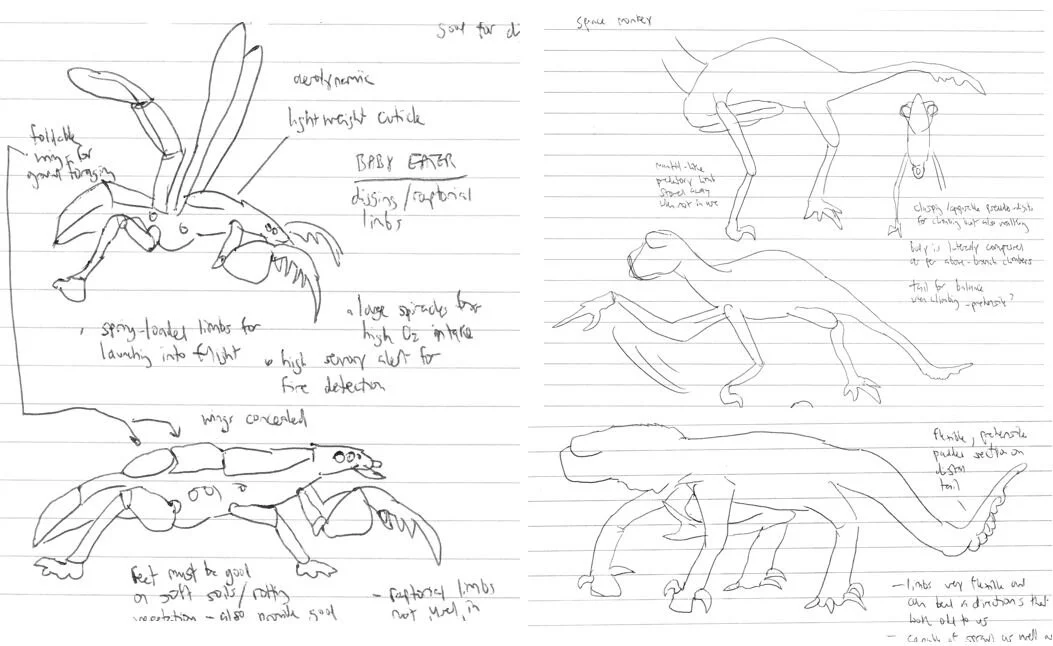 Goal for di
aerodynamic
lightweight cuticle
foldable
wings for
ground foraging
BABY EATER
digging/raptorial
limbs
spring-loaded limbs for
launching into flight
large spiracles for
high O2 intake
high sensory alert for
fire detection
wings concealed
Feet must be good
on soft soils/rotting
vegetation - also provide good
- raptorial limbs
not used in
space monkey
mantid-like
predatory limb
stored away
when not in use
for climbing but also walking
body is laterally compressed
as per above-branch climbers
tail for balance
when climbing - prehensile?
flexible, prehensile
padded section on
distal
tail
- limbs very flexible and
can bend in directions that
look odd to us
- capable of sprawl as well as